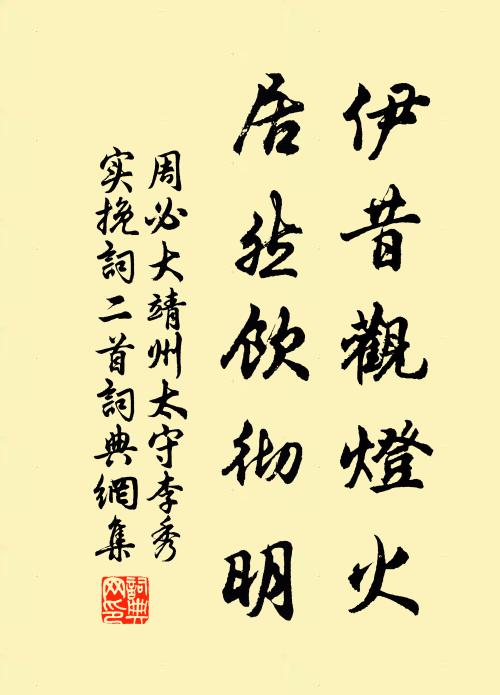 伊昔觀燈火
居然飲彻明
周必大靖州太守李秀
实挽詞二首詞典網集
詞典网印